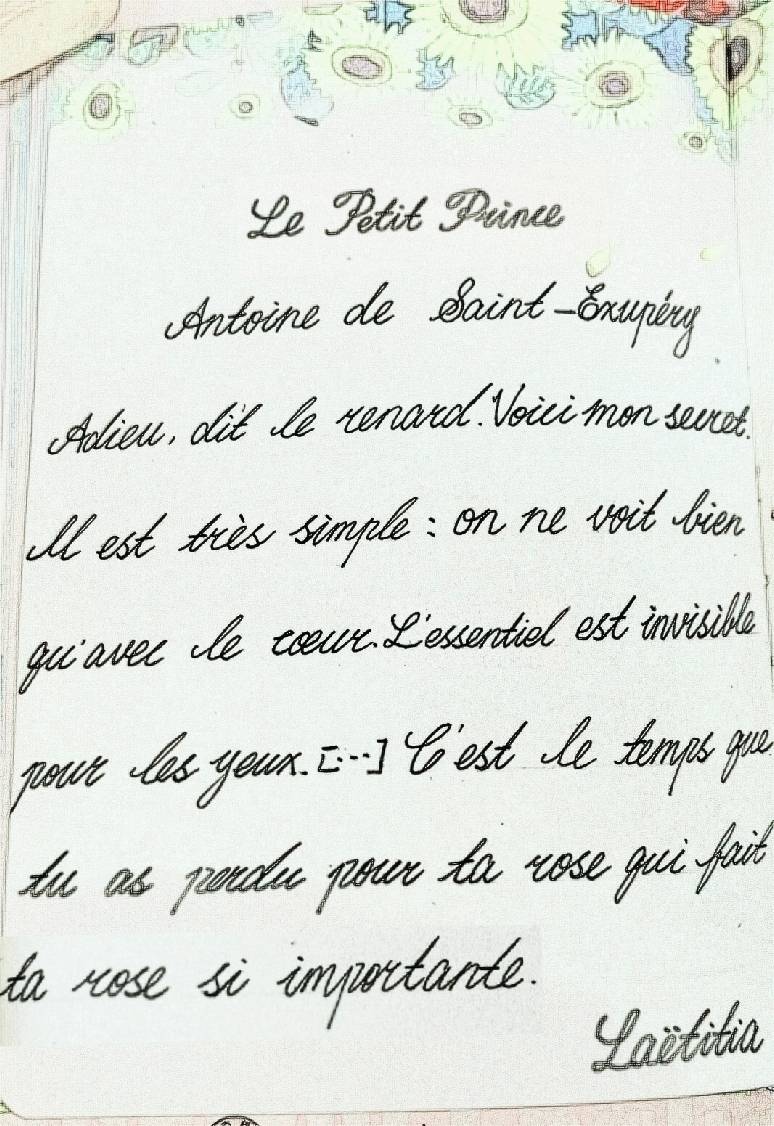 Le Petit Prince
Antoine de Saint-Exupéry
Adieu, dit le renard. Voici mon secret.
Il est très simple : on ne voit bien
qu'avec le cœur. L'essentiel est invisible
pour les yeux. [...] C'est le temps que
tu as perdu pour ta rose qui fait
ta rose si importante.
Laëtitia